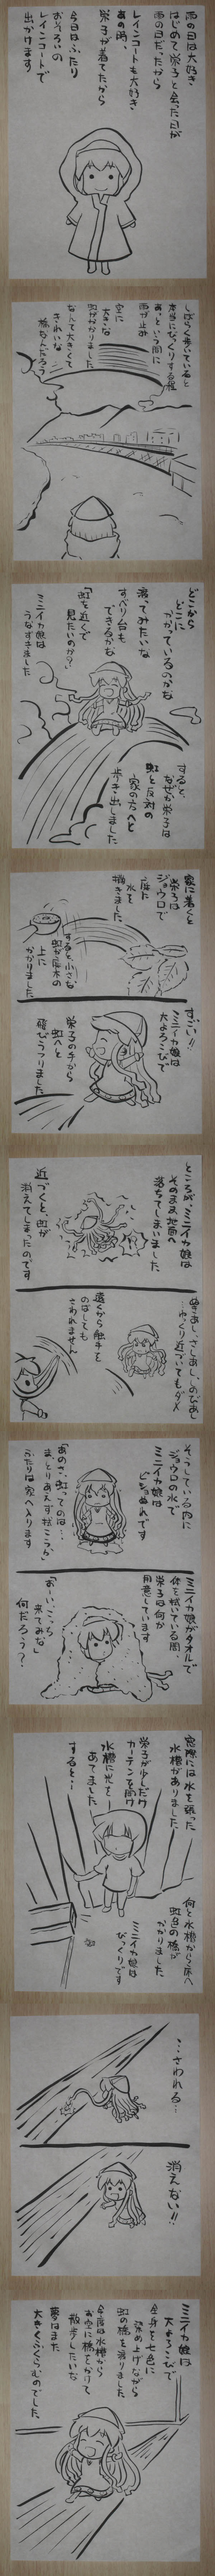 雨の日は大好き
はじめて栄子と会った日が
雨の日だったから
あの時、
栄子が着てたから
レインコートも大好き
今日はふたり
おそろいの
レインコートで
出かけます
しばらく歩いていると
本当にびっくりする程
あっという間に
雨が止み
空に
大きな
虹がかかりました
なんて大きくて
きれいな
橋なんだろう
どこから
どこに
かかっているのかな
渡ってみたいな
すべり台も
できるかな
「虹を近くで
見たいのか？」
ミニイカ娘は
うなずきました
すると、
なぜか栄子は
虹と反対の
家の方へと
歩き出しました
家に着くと
栄子は
ジョウロで
庭に
水を
撒きました
すると、小さな
虹が庭木の
上に
かかりました
すごい!!
ミニイカ娘は
大よろこびで
栄子の手から
虹へと
飛びうつりました
ところが、ミニイカ娘は
そのまま地面へ
落ちてしまいました
近づくと、虹が
消えてしまったのです
ぬきあし、さしあし、のびあし
…ゆっくり近づいてもダメ
遠くから触手を
のばしても
さわれません
そうしている内に
ジョウロの水で
ミニイカ娘は
びしょぬれです
「あのさ、虹ってのは…
まぁとりあえず拭こうか」
ふたりは家へ入ります
ミニイカ娘がタオルで
体を拭いている間
栄子は何か
用意しています
「おーい、こっち
来てみな」
何だろう？
窓際には水を張った
水槽がありました
栄子が少しだけ
カーテンを開け
水槽に光を
あてました
すると…
何と水槽から床へ
虹色の橋が
かかりました
ミニイカ娘は
びっくりです
…さわれる…
消えない!!
ミニイカ娘は
大よろこびで
全身を七色に
染め上げながら
虹の橋を渡りました
今度は水槽から
お空に橋をかけて
散歩したいな
夢はまた
大きくふくらむのでした